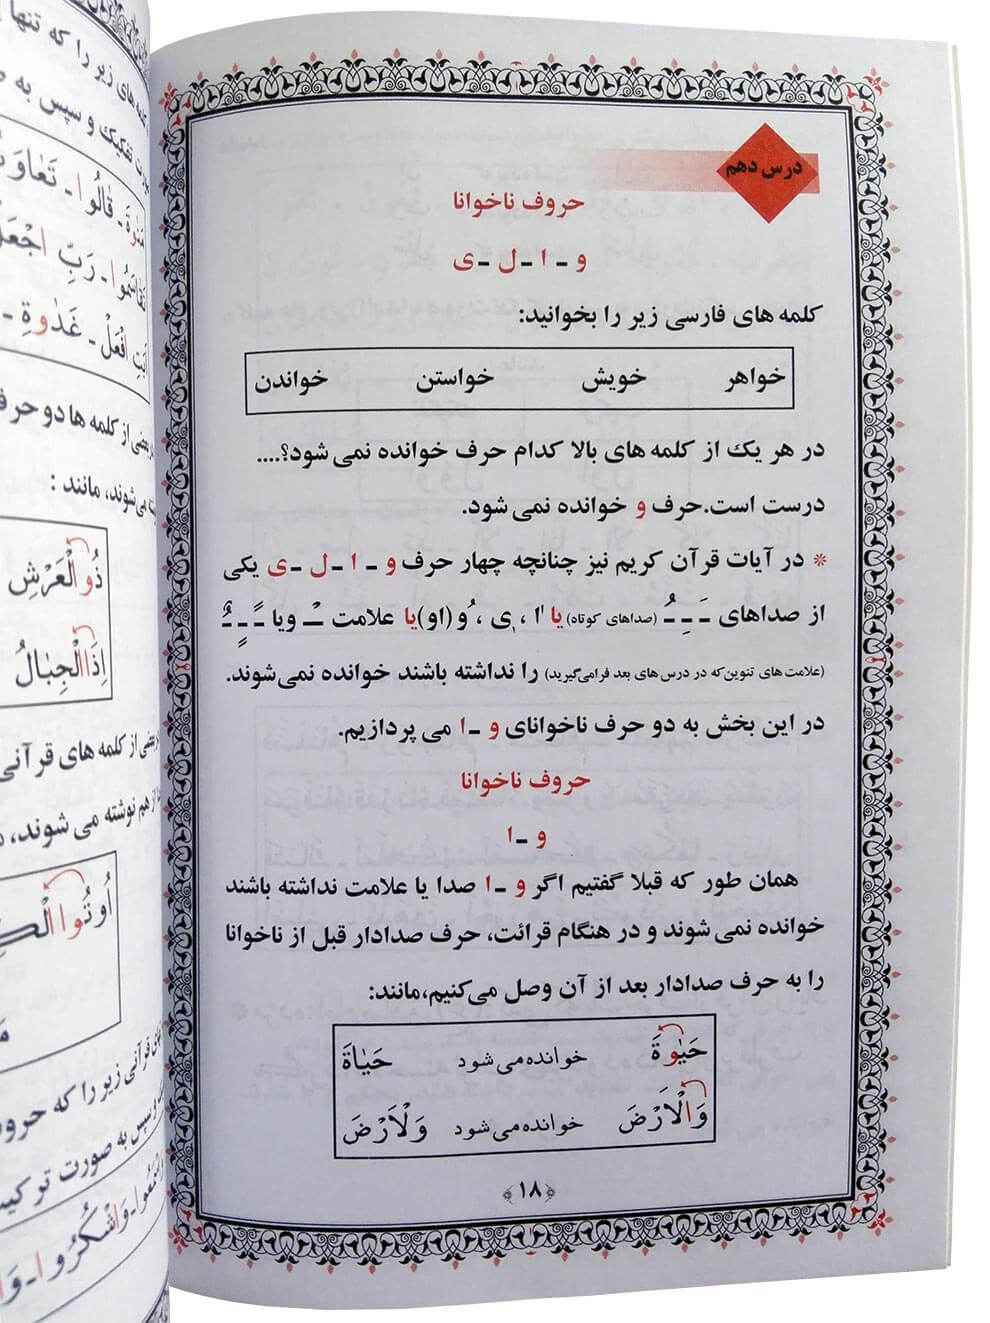 درس دهم
حروف ناخوانا
و ـ ا ـ ل ـ ی
کلمه های فارسی زیر را بخوانید:
خواهر خویش خواستن خواندن
در هر یک از کلمه های بالا کدام حرف خوانده نمی شود؟....
درست است.حرف و خوانده نمی شود.
* در آیات قرآن کریم نیز چنانچه چهار حرف و ـ ا ـ ل ـ ی یکی
از صداهای ـَ ـِ ـُ (صداهای کوتاه) یا ا ، ی ، و (او) یا علامت ـْ ویا ـً ـٍ ـٌ
(علامت های تنوین که در درس های بعد فرامی‌گیرید) را نداشته باشند خوانده نمی شوند.
در این بخش به دو حرف ناخوانای و ـ ا می پردازیم.
حروف ناخوانا
و ـ ا
همان طور که قبلا گفتیم اگر و ـ ا صدا یا علامت نداشته باشند
خوانده نمی شوند و در هنگام قرائت، حرف صدادار قبل از ناخوانا
را به حرف صدادار بعد از آن وصل می‌کنیم،مانند:
حَیٰوةَ خوانده می شود حَیٰاةَ
وَالْاَرْضَ خوانده می شود وَلْاَرْضَ
﴿۱۸﴾
زیر را که تنها
تفکیک و سپس به
قٰالُوا ـ تَعٰاوَ
رَبِّ اجْعَلْ
افْعَلْ ـ غَدٰوةِ ـ
از کلمه ها دو حرف
می‌شوند، مانند :
ذُوالْعَرْشِ
اِذَاالْجِبٰالُ
از کلمه های قرآنی
از هم نوشته می شوند،
اُوتُواالْكِ
قرآنی زیر را که حروف
سپس به صورت ترکیب
وَاشْكُرُوا ـ وَا